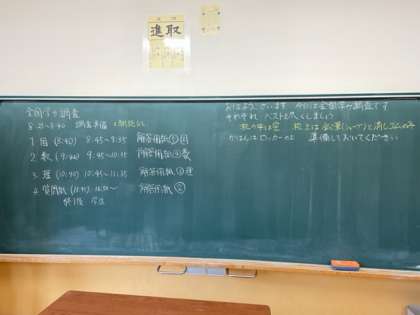 進取
全国学力調査
8:25~8:40 調査準備 ※朝読なし
1 国 (8:40) 8:45~9:35 解答用紙① 国
2 数 (9:40) 9:45~10:35 解答用紙② 数
3 理 (10:40) 10:45~11:35 解答用紙③ 理
4 質問紙 (11:45) ~ 解答用紙②
終了後 学活
おはようございます 今日は全国学力調査です
それぞれ、ベストを尽くしましょう
机の中は空 机上は鉛筆(シャープ)と消しゴムのみ
かばんはロッカーの上 準備しておいてください